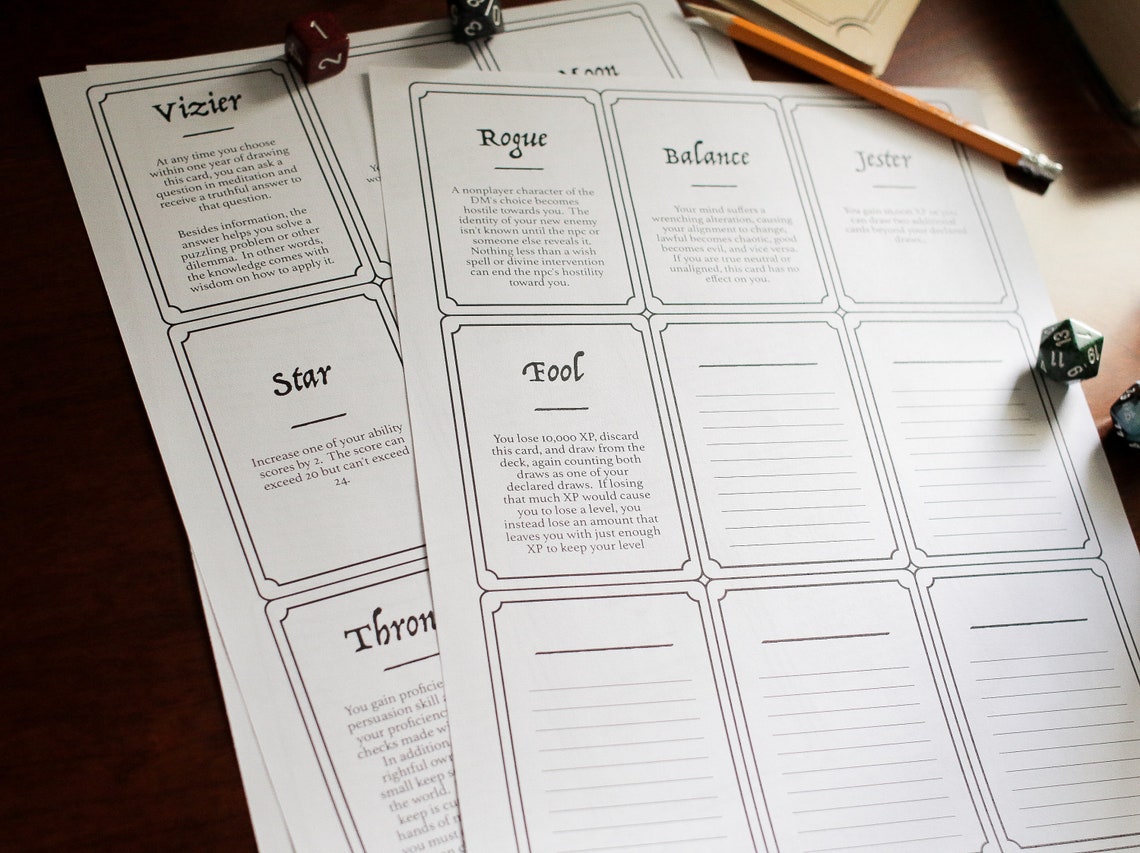 Vizier
At any time you choose
within one year of drawing
this card, you can ask a
question in meditation and
receive a truthful answer to
that question.
Besides information, the
answer helps you solve a
puzzling problem or other
dilemma. In other words,
the knowledge comes with
wisdom on how to apply it.
Moon
Star
Increase one of your ability
scores by 2. The score can
exceed 20 but can't exceed
24.
Thron
You gain proficie
persuasion skill
your proficienc
checks made wi
In addition
rightful own
small keep s
the world.
keep is cu
hands of m
you must
Rogue
A nonplayer character of the
DM's choice becomes
hostile towards you. The
identity of your new enemy
isn't known until the npc or
someone else reveals it.
Nothing less than a wish
spell or divine intervention
can end the npc's hostility
toward you.
Balance
Your mind suffers a
wrenching alteration, causing
your alignment to change,
lawful becomes chaotic, good
becomes evil, and vice versa.
If you are true neutral or
unaligned, this card has no
effect on you.
Jester
You gain 10,000 XP or you
can draw two additional
cards beyond your declared
draws.
Fool
You lose 10,000 XP, discard
this card, and draw from the
deck, again counting both
draws as one of your
declared draws. If losing
that much XP would cause
you to lose a level, you
instead lose an amount that
leaves you with just enough
XP to keep your level
1
2
13
11
19